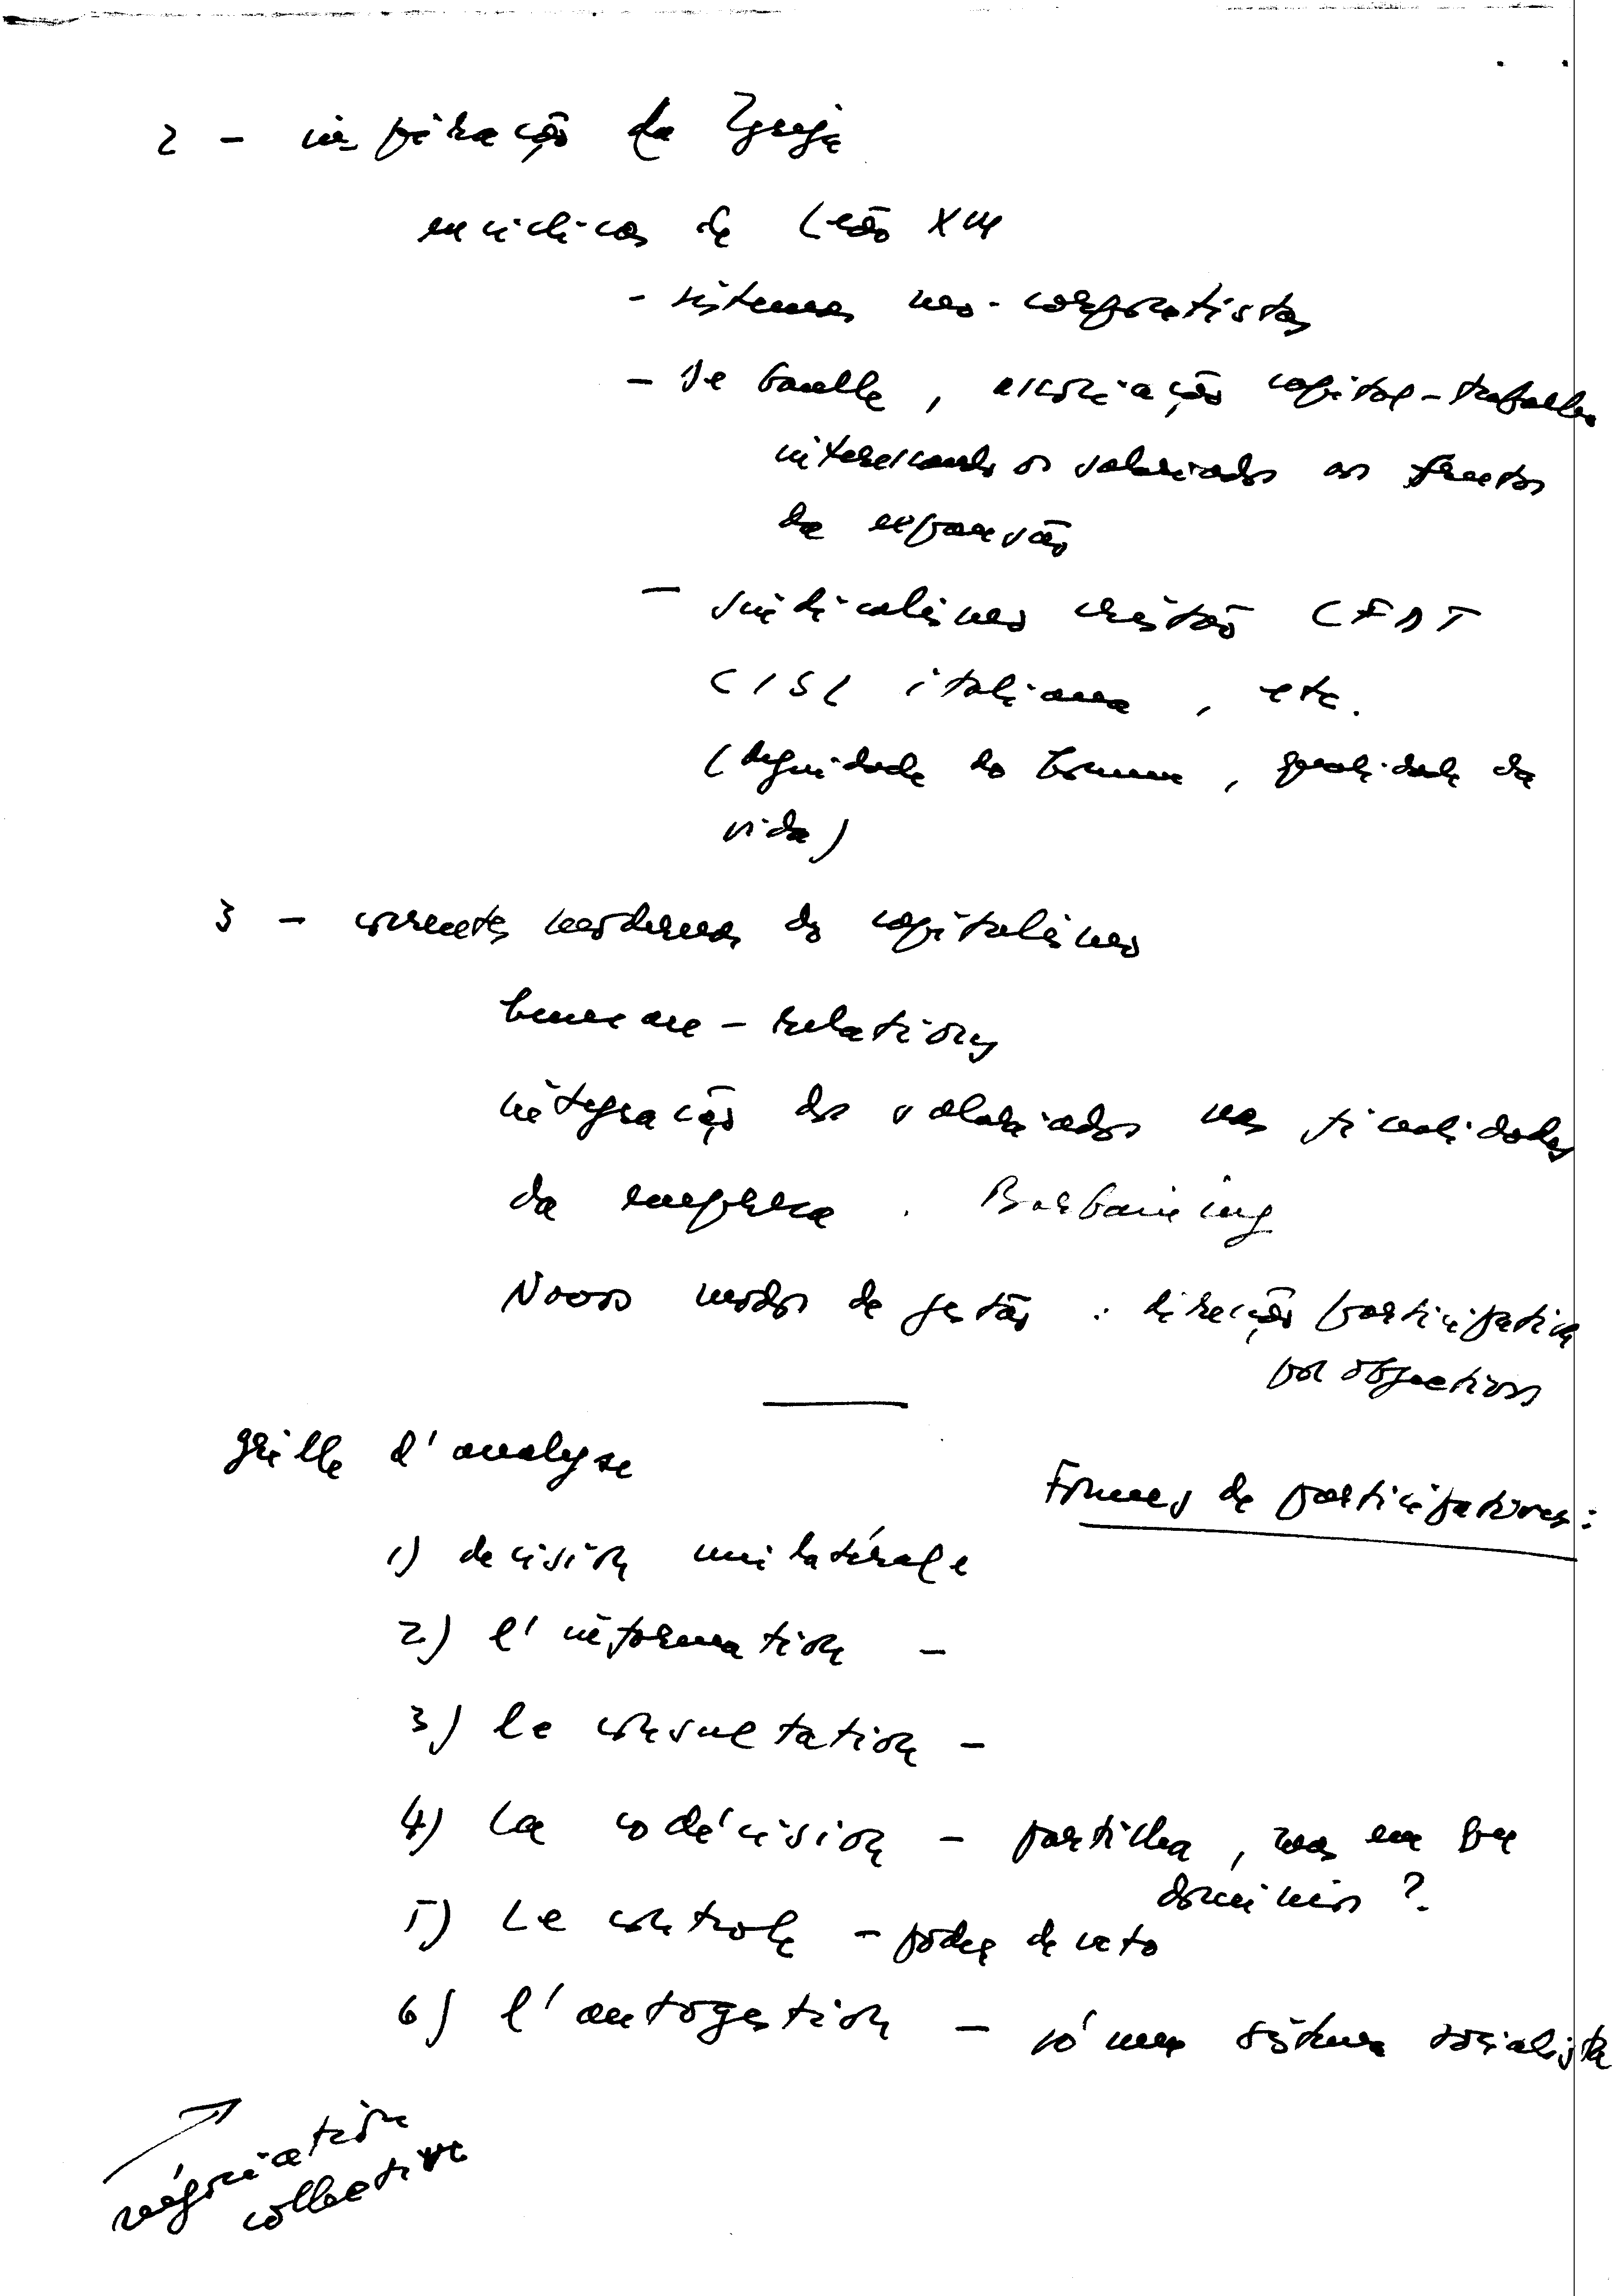 2 - inspiração da Igreja
encíclicas de Leão XIII
- sistemas neo-corporatistas
- De Gaulle, associação capital-trabalho
interessando os salariados aos frutos
da expansão
- sindicalismo cristão CFDT
CISL italiana, etc.
(dignidade do homem, qualidade da
vida)
3 - correntes modernas do capitalismo
human-relations
integração dos salariados nas finalidades
da empresa. Bargaining
Novos modos de gestão: direcção participativa
por objectivos
grille d'analyse
Formes de participations:
1) decision unilatérale
2) l'information -
3) la consultation -
4) La codécision - partilha, mas em que
domínios?
5) Le controle - poder de veto
6) l'autogestion - só num sistema socialista
négociation
collective